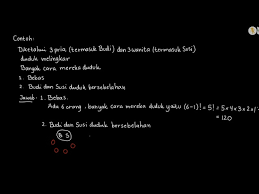 Contoh:
Diketahui 3 pria (termasuk Budi) dan 3 wanita (termasuk Susi)
duduk melingkar
Banyak cara mereka duduk
1. Bebas
2. Budi dan Susi duduk bersebelahan
Jawab: 1. Bebas.
Ada 6 orang, banyak cara mereka duduk yaitu (6-1)! = 5! = 5x4x3x2x1
= 120
2. Budi dan Susi duduk bersebelahan
B S